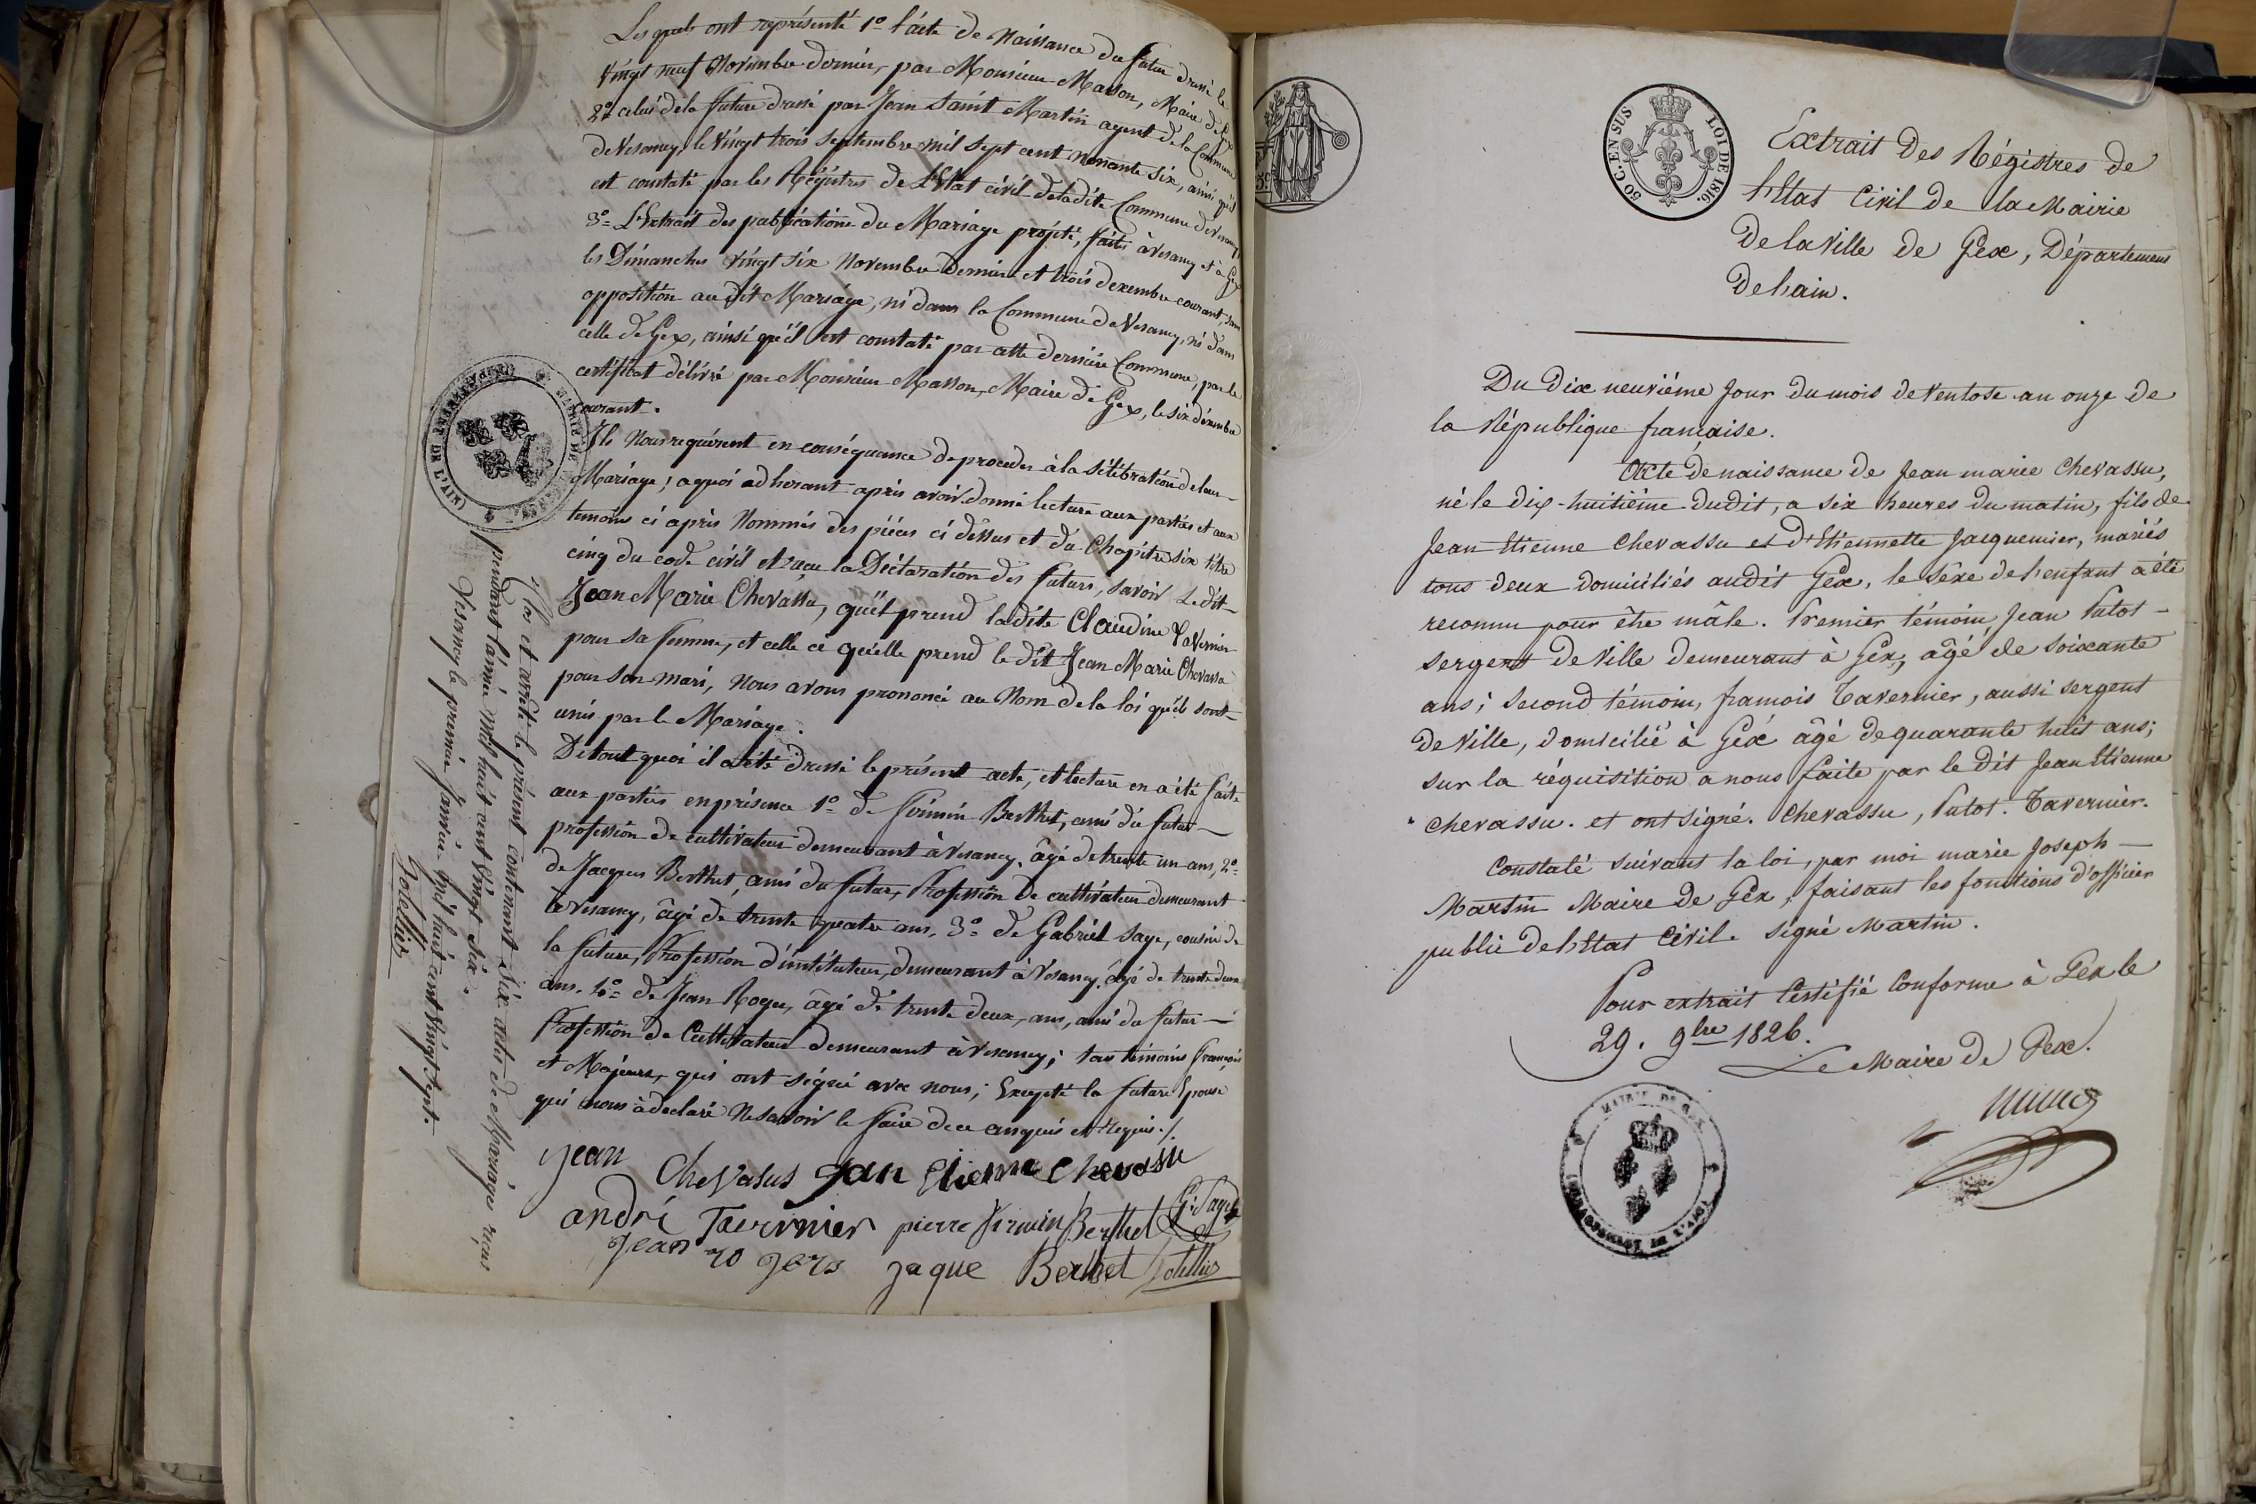 Lesquels ont représenté 1o l'acte de Naissance du futur dressé le
vingt neuf Novembre dernier, par Monsieur Masson, Maire de Gex
2o celui de la future dressé par Jean Saint Martin agent de la Commune
de Vesancy, le vingt trois Septembre mil sept cent nonante six, ainsi qu'il
est constaté par les Régistres de L'Etat civil de ladite Commune de Vesancy
3o L'Extrait des publications du Mariage projeté, faits à Vesancy et à Gex
les Dimanches vingt six Novembre dernier et trois décembre courant, sans
opposition au dit Mariage, ni dans la Commune de Vesancy, ni dans
celle de Gex, ainsi qu'il est constaté par cette dernière Commune, par le
certificat délivré par Monsieur Masson, Maire de Gex, le six décembre
courant.
Ils Nous requierent en conséquence de proceder à la Célébration de leur
Mariage; a quoi adherant après avoir donné lecture aux parties et aux
temoins ci après Nommés des pièces ci dessus et du Chapitre six titre
cinq du code civil et reçu la Déclaration des futurs, savoir Ledit
Jean Marie Chevassu, qu'il prend ladite Claudine Tavernier
pour sa femme, et celle ci qu'elle prend le dit Jean Marie Chevassu
pour son mari, Nous avons prononcé au Nom de la loi qu'ils sont
unis par le Mariage.
De tout quoi il a été dressé le présent acte, et lecture en a été faite
aux parties en présence 1o de Firmin Berthet, ami du futur
profession de cultivateur demeurant à Vesancy, âgé de trente un ans, 2o
de Jacques Berthet, ami du futur, Profession de cultivateur demeurant
à Vesancy, âgé de trente quatre ans. 3o de Gabriel Saye, cousin de
la future, Profession d'instituteur demeurant à Vesancy, âgé de trente deux
ans. 4o de Jean Roger, âgé de trente deux, ans, ami du futur
Profession de Cultivateur demeurant à Vesancy; tous témoins français
et Majeurs, qui ont signé avec nous; Excepté la future Epouse
qui nous à declaré Ne savoir le faire de ce enquis et requis./.
jean Chevasus Jean Etienne Chevassu
andré Tavernier pierre firmin Berthet G. Saye
jean rogers jaque Berthet
MAIRIE DE
DÉPARTEMENT DE L'AIN
Clos et arreté le présent contenant Six actes de Mariages reçus
pendant l'année mil huit cent vingt six.
Vesancy le premier Janvier mil huit cent vingt sept.
50 C. EN SUS LOI DE 1816.
Extrait Des Régistres de
l'Etat Civil De la Mairie
De la Ville de Gex, Département
De l'ain.
Du Dix neuviéme Jour Du mois de Ventose an onze de
la République française.
Acte De naissance de Jean marie Chevassu,
né le dix-huitième dudit, a six heures du matin, fils de
Jean Etienne Chevassu et d'Etiennette Jacquemier, mariés
tous deux domiciliés audit Gex, le sèxe de l'enfant a été
reconnu pour être mâle. Premier témoin, Jean Putot
sergent De Ville demeurant à Gex, âgé de soixante
ans; Second témoin, françois Tavernier, aussi sergent
De Ville, domicilié à Géx âgé de quarante huit ans;
sur la réquisition a nous faite par le dit Jean Etienne
Chevassu. et ont signé. Chevassu, Putot. Tavernier.
Constaté suivant la loi, par moi marie Joseph
Martin Maire De Gex, faisant les fonctions d'officier
public De l'Etat Civil. signé Martin.
Pour extrait Certifié Conforme à Gex le
29. 9bre 1826.
Le Maire De Gex.
MAIRIE DE GEX